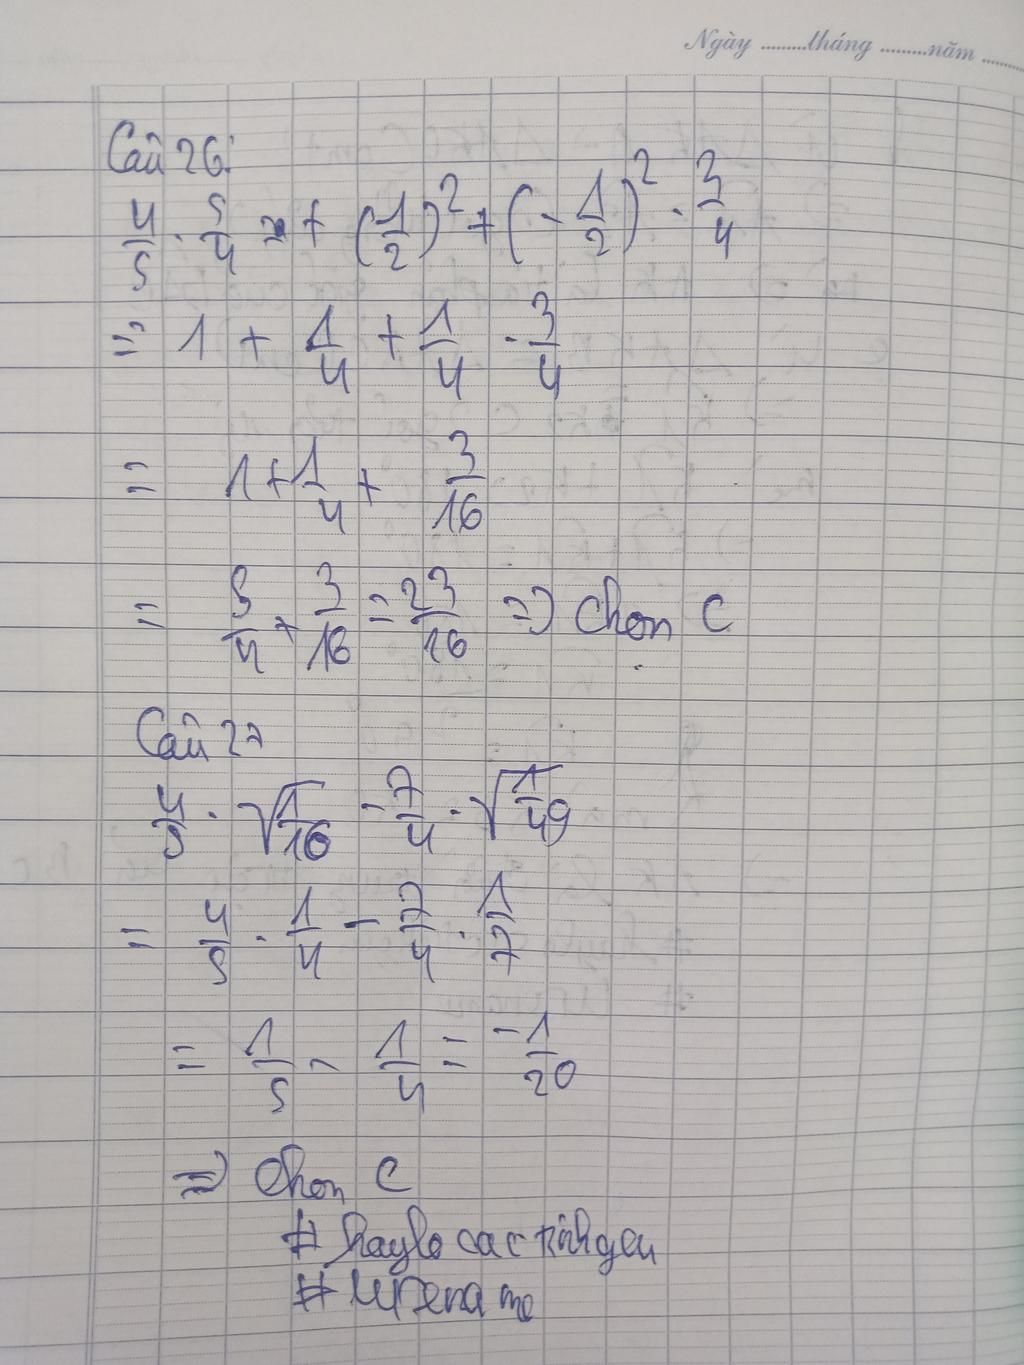 Ngày .........tháng .........năm ......
Câu 26:
4/5 . 5/4 + (1/2)² + (-1/2)² . 3/4
= 1 + 1/4 + 1/4 . 3/4
= 1 + 1/4 + 3/16
= 5/4 + 3/16 = 23/16 => Chọn C
Câu 27
4/5 . √1/16 - 7/4 . √1/49
= 4/5 . 1/4 - 7/4 . 1/7
= 1/5 - 1/4 = -1/20
=> Chon C
#
#